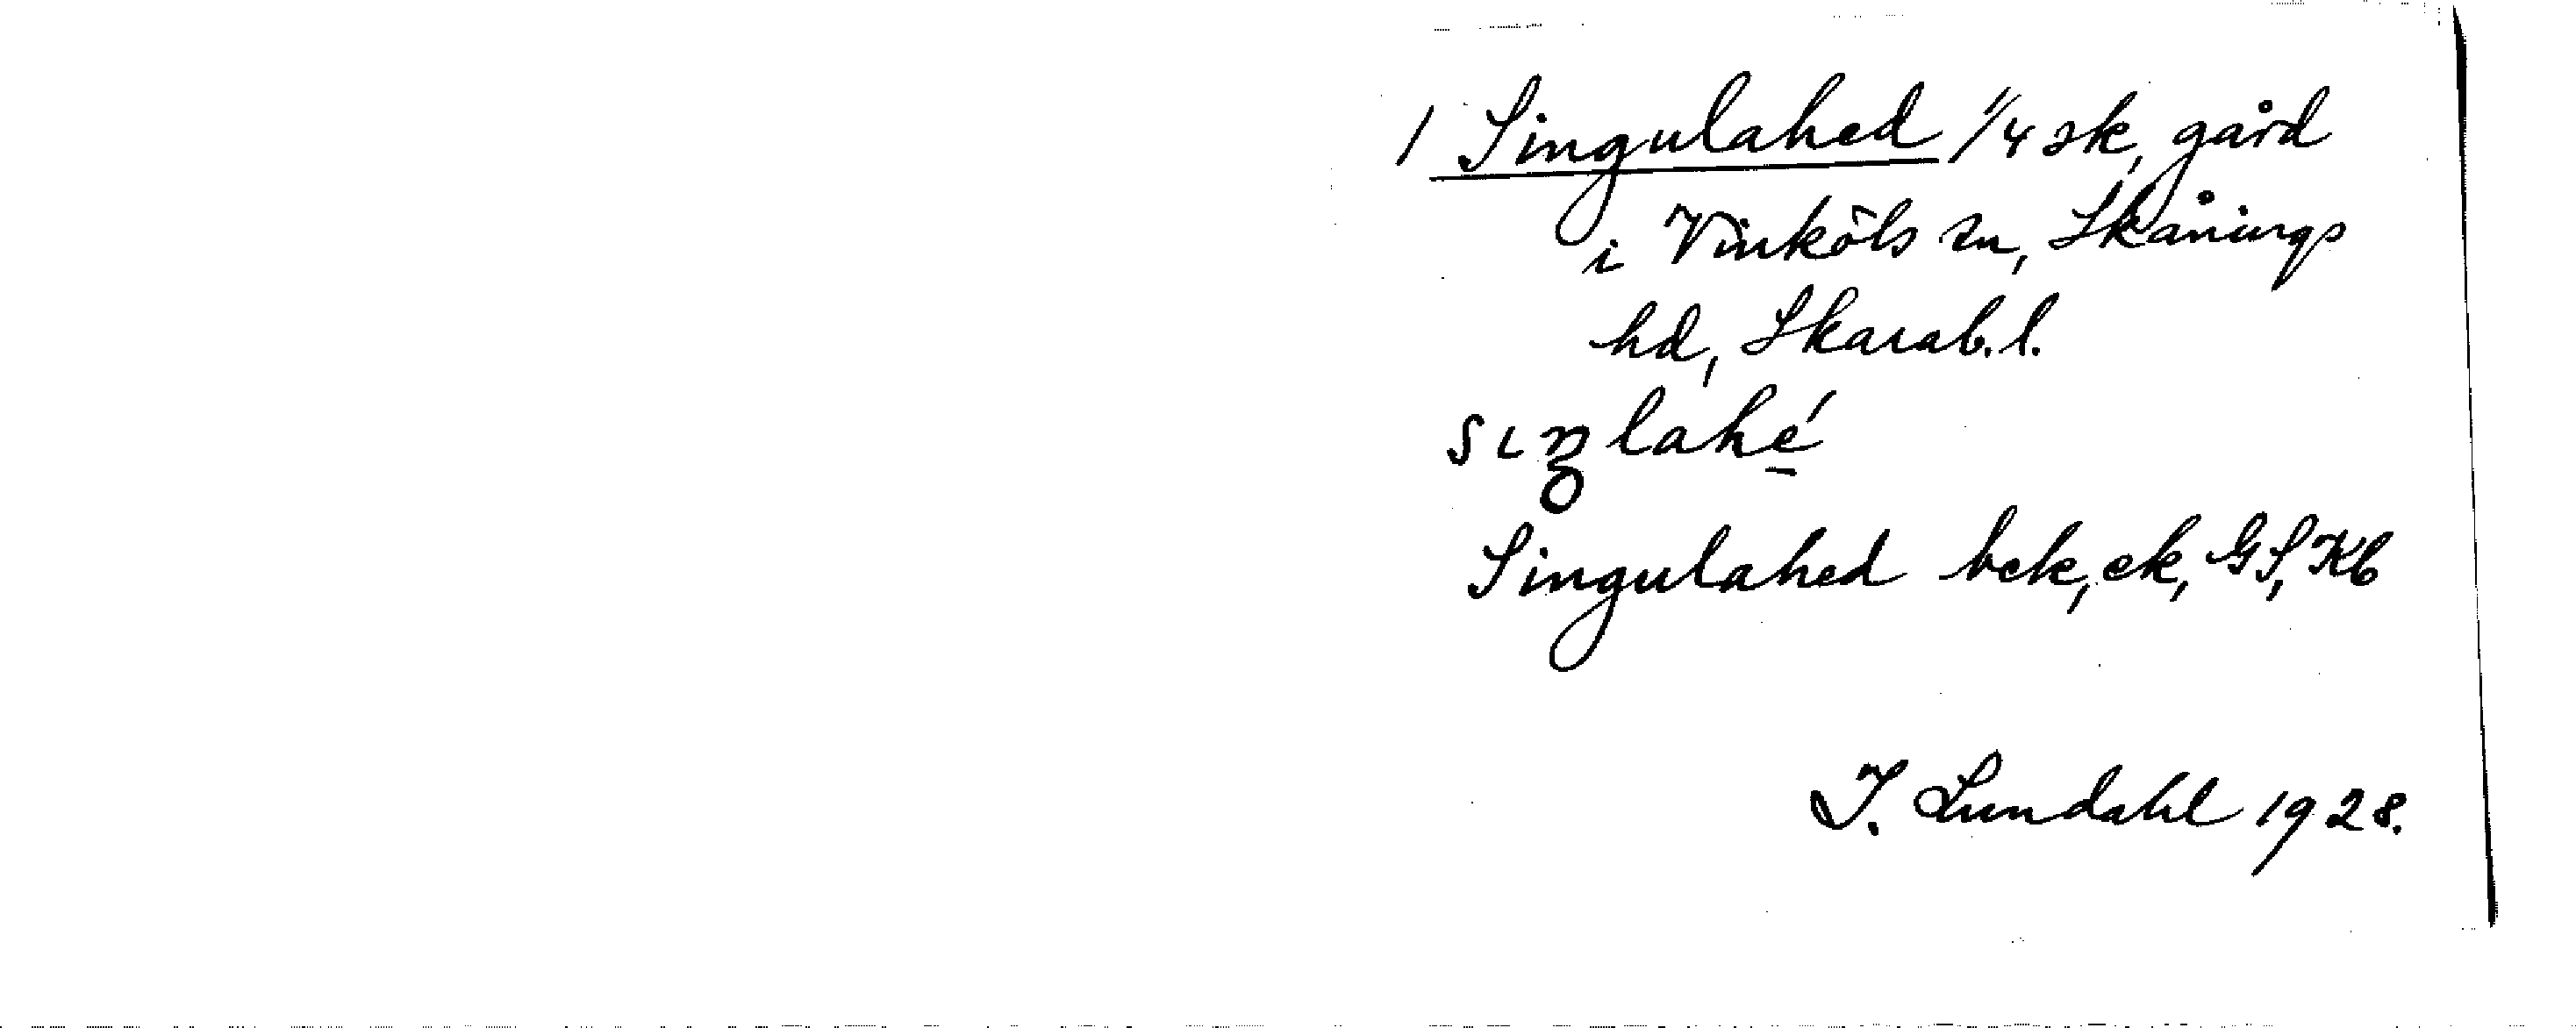 1 Singulahed 1/4 sk, gård
i Vinköls sn, Skånings
hd, Skarab.l.
sıŋlahé
Singulahed bek, ek, GS, Kb
I. Lundahl 1928.